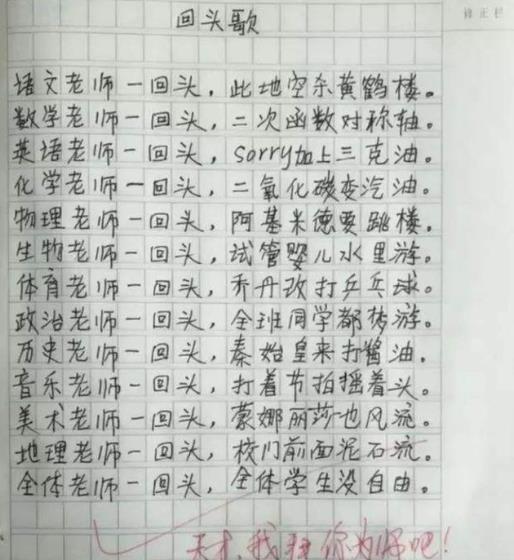 修正栏
回头歌
语文老师一回头，此地空余黄鹤楼。
数学老师一回头，二次函数对称轴。
英语老师一回头，sorry加上三克油。
化学老师一回头，二氧化碳变汽油。
物理老师一回头，阿基米德要跳楼。
生物老师一回头，试管婴儿水里游。
体育老师一回头，乔丹改打乒乓球。
政治老师一回头，全班同学都梦游。
历史老师一回头，秦始皇来打酱油．
音乐老师一回头，打着节拍摇着头。
美术老师一回头，蒙娜丽莎也风流。
地理老师一回头，校门前面泥石流。
全体老师一回头，全体学生没自由。
天才，我拜你为师吧！